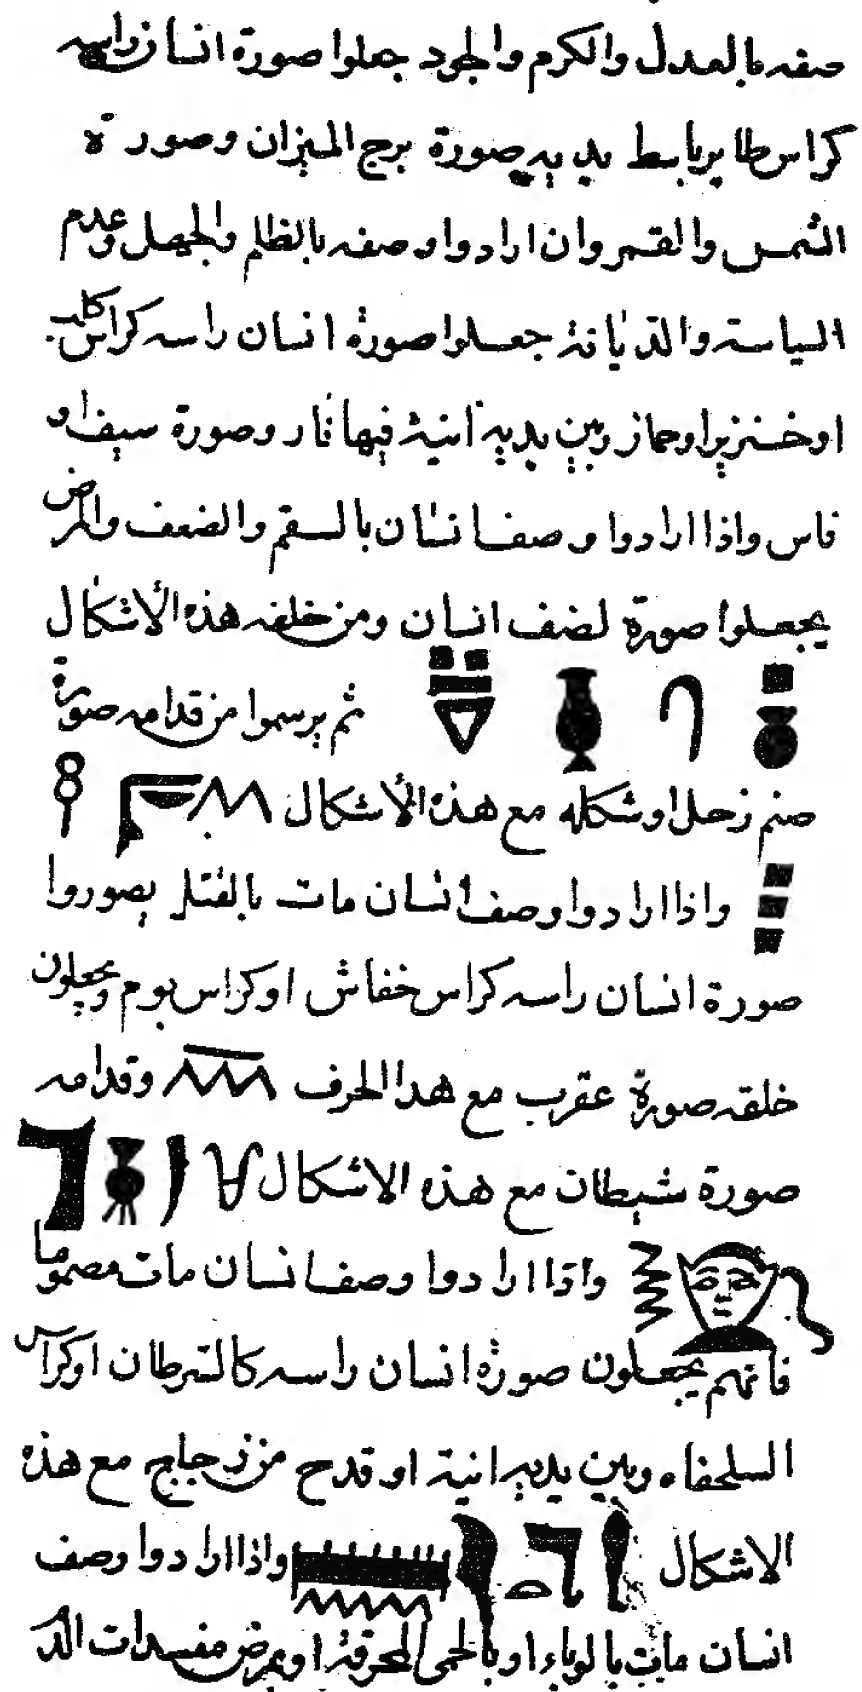 صفه بالعدل والكرم والجود جعلوا صورة انسان راسه
كراس طاير باسط يديه صورة برج الميزان وصورة
الشمس والقمر وان ارادوا وصفه بالظلم والجهل وعدم
السياسة والديانة جعلوا صورة انسان راسه كراس كلب
او خنزير او حمار وبين يديه انية فيها نار وصورة سيف او
فاس واذا ارادوا وصف انسان بالسقم والضعف والمرض
يجعلوا صورة لضف انسان ومن خلفه هذه الأشكال
ثم يرسموا من قدامه صورة
صنم زحل او شكله مع هذه الأشكال
واذا ارادوا وصف انسان مات بالقتل يصوروا
صورة انسان راسه كراس خفاش او كراس بوم ويجعلون
خلفه صورة عقرب مع هدا الحرف وقدامه
صورة شيطان مع هذه الاشكال
واذا ارادوا وصف انسان مات مصموما
فانهم يجعلون صورة انسان راسه كالسرطان او كراس
السلحفاه وبين يديه انية او قدح من زجاج مع هذه
الاشكال واذا ارادوا وصف
انسان مات بالوباء او بالحمى المحرقة او بمرض مفسدات الد